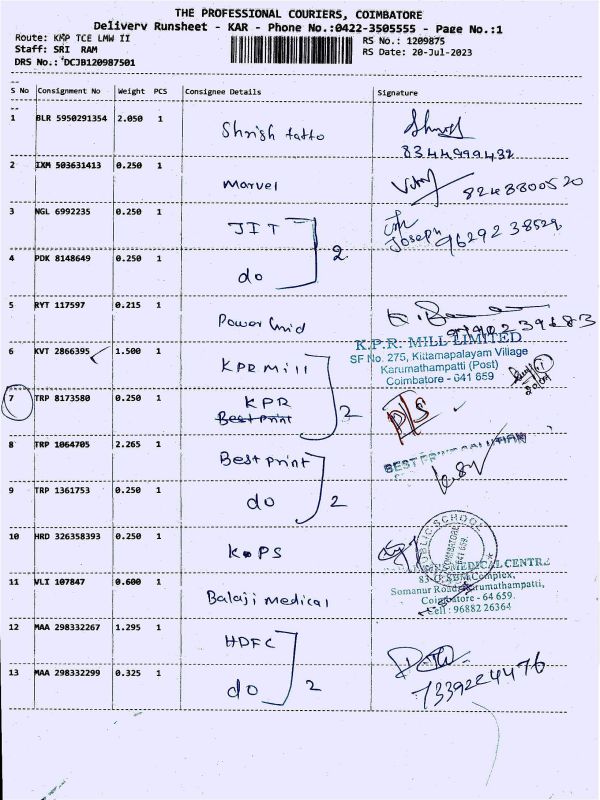 THE PROFESSIONAL COURIERS, COIMBATORE
Delivery Runsheet - KAR - Phone No.:0422-3505555 - Page No.:1
Route: KMP TCE LMW II
RS No.: 1209875
Staff: SRI RAM
RS Date: 20-Jul-2023
DRS No.: DCJB120987501
S No Consignment No Weight PCS Consignee Details Signature
1 BLR 5950291354 2.050 1 Shrish tatto
8344999432
2 IXM 503631413 0.250 1 Marvel 8243300520
3 NGL 6992235 0.250 1 JIT Joseph 9629238529
2
4 PDK 8148649 0.250 1 do
5 RYT 117597 0.215 1 Power Grid
6 KVT 2866395 1.500 1 KPR Mill
K.P.R. MILL LIMITED
SF No. 275, Kittamapalayam Village
Karumathampatti (Post)
Coimbatore - 641 659
7 TRP 8173580 0.250 1 KPR
Best print
2
8 TRP 1064705 2.265 1 Best print
9 TRP 1361753 0.250 1 do 2
10 HRD 326358393 0.250 1 KPS
PUBLIC SCHOOL
COIMBATORE
641 659.
MEDICAL CENTRE
Complex,
Somanur Road, Karumathampatti,
Coimbatore - 64 659.
Cell : 96882 26364
11 VLI 107847 0.600 1 Balaji medical
12 MAA 298332267 1.295 1 HDFC
13 MAA 298332299 0.325 1 do 2
7339224476